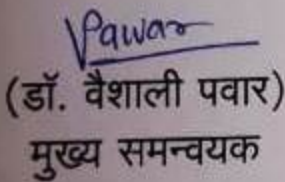 VPawar
(डॉ. वैशाली पवार)
मुख्य समन्वयक